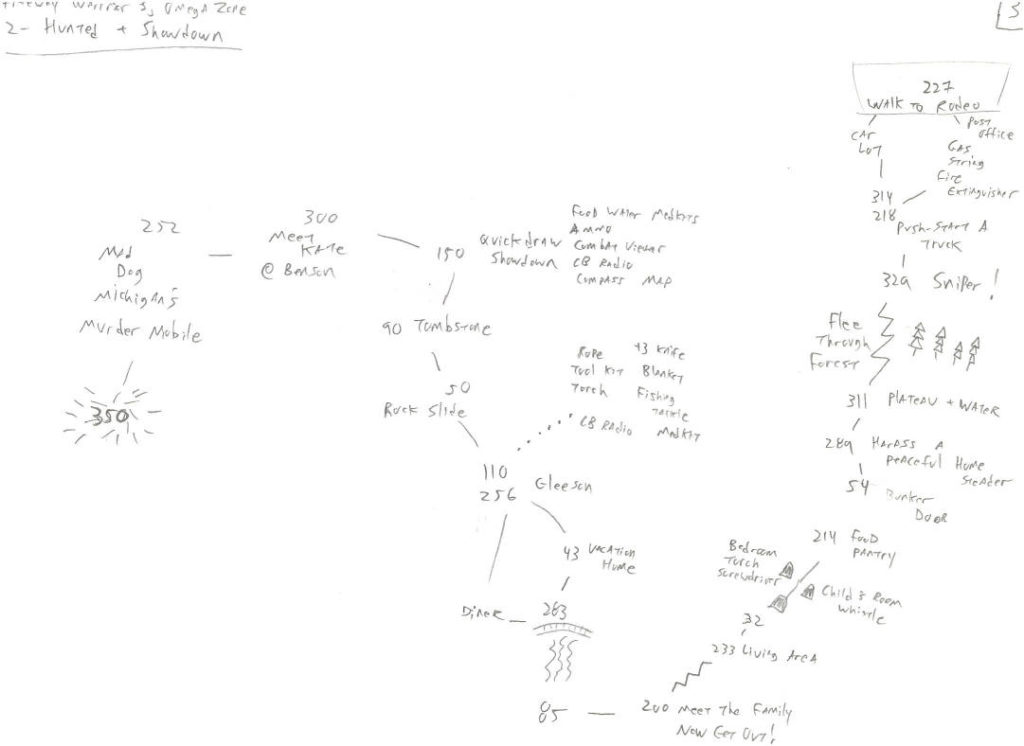 Freeway Warrior 3, Omega Zone
2 - Hunted + Showdown
3
227
Walk to Rodeo
Car
Lot
Post
Office
Gas
String
Fire
Extinguisher
314
218
Push-Start A
Truck
329 Sniper!
Flee
Through
Forest
311 Plateau + Water
289 Harass A
Peaceful Home
Steader
54 Bunker
Door
214 Food
Pantry
Bedroom
Torch
Screwdriver
Child's Room
Whistle
32
233 Living Area
200 Meet The Family
Now Get Out!
05
263
Diner
43 Vacation
Home
110
256 Gleeson
Rope +3 Knife
Tool Kit Blanket
Torch Fishing
Tackle
CB Radio Medkit
50
Rock Slide
90 Tombstone
150 Quickdraw
Showdown
Food Water Medkits
Ammo
Combat Visor
CB Radio
Compass Map
300
Meet
Kate
@ Benson
252
Mad
Dog
Michigan's
Murder Mobile
350